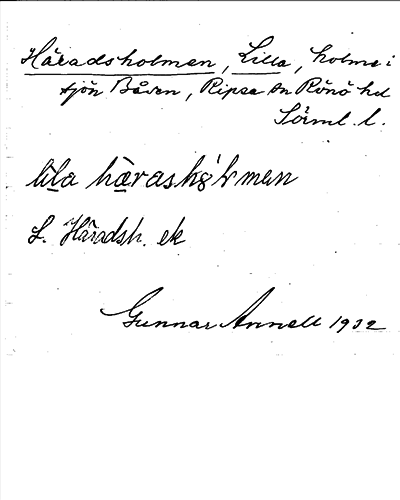 Häradsholmen, Lilla, holme i
sjön Båven, Ripsa sn Rönö hd
Sörml. l.
lila härashɷlmen
L. Häradsh. ek
Gunnar Annell 1932